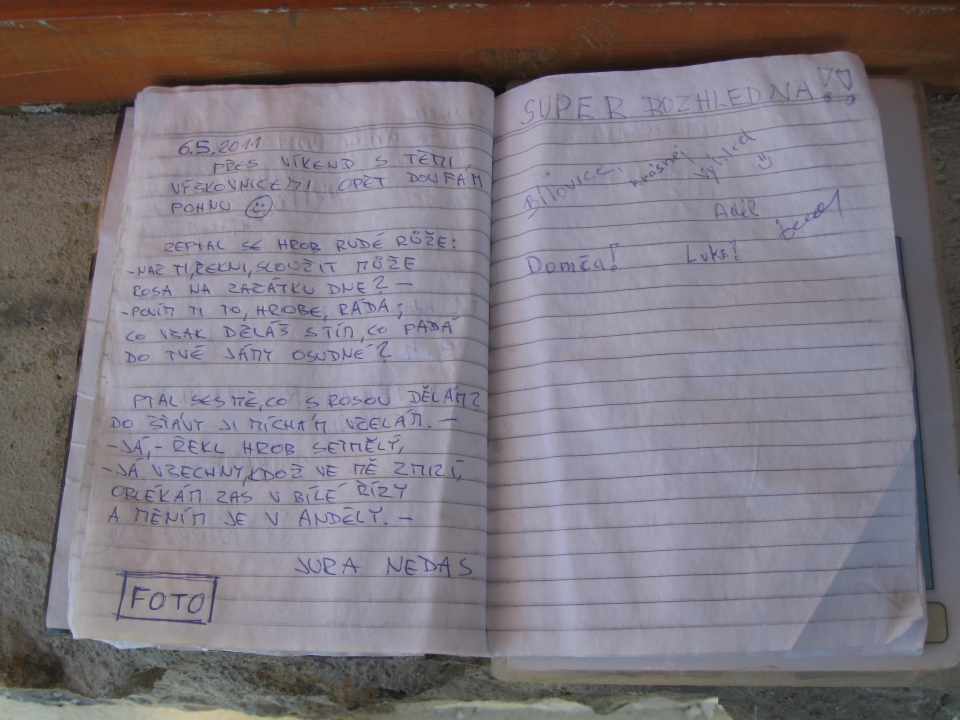 6.5.2011
PŘES VÍKEND S TĚMI
VĚŠKOVNICEMI OPĚT DOUFÁM
POHNU
ZEPTAL SE HROB RUDÉ RŮŽE:
-NAČ TI, ŘEKNI, SLOUŽIT MŮŽE
ROSA NA ZAČÁTKU DNE? -
-POVÍM TI TO, HROBE, RÁDA;
CO VŠAK DĚLÁŠ S TÍM, CO PADÁ
DO TVÉ JÁMY OSUDNÉ?
PTAL SES MĚ, CO S ROSOU DĚLÁM?
DO ŠŤÁVY JI MÍCHÁM VČELÁM. -
-JÁ,- ŘEKL HROB SETMĚLÝ,
-JÁ VŠECHNY, KDOŽ VE MĚ ZMIZÍ,
OBLÉKÁM ZAS V BÍLÉ ŘÍZY
A MĚNÍM JE V ANDĚLY. -
JURA NEDAS
FOTO
SUPER ROZHLEDNA!!
Bílovice. krásnej výhled
Adél
Domča! Luke!